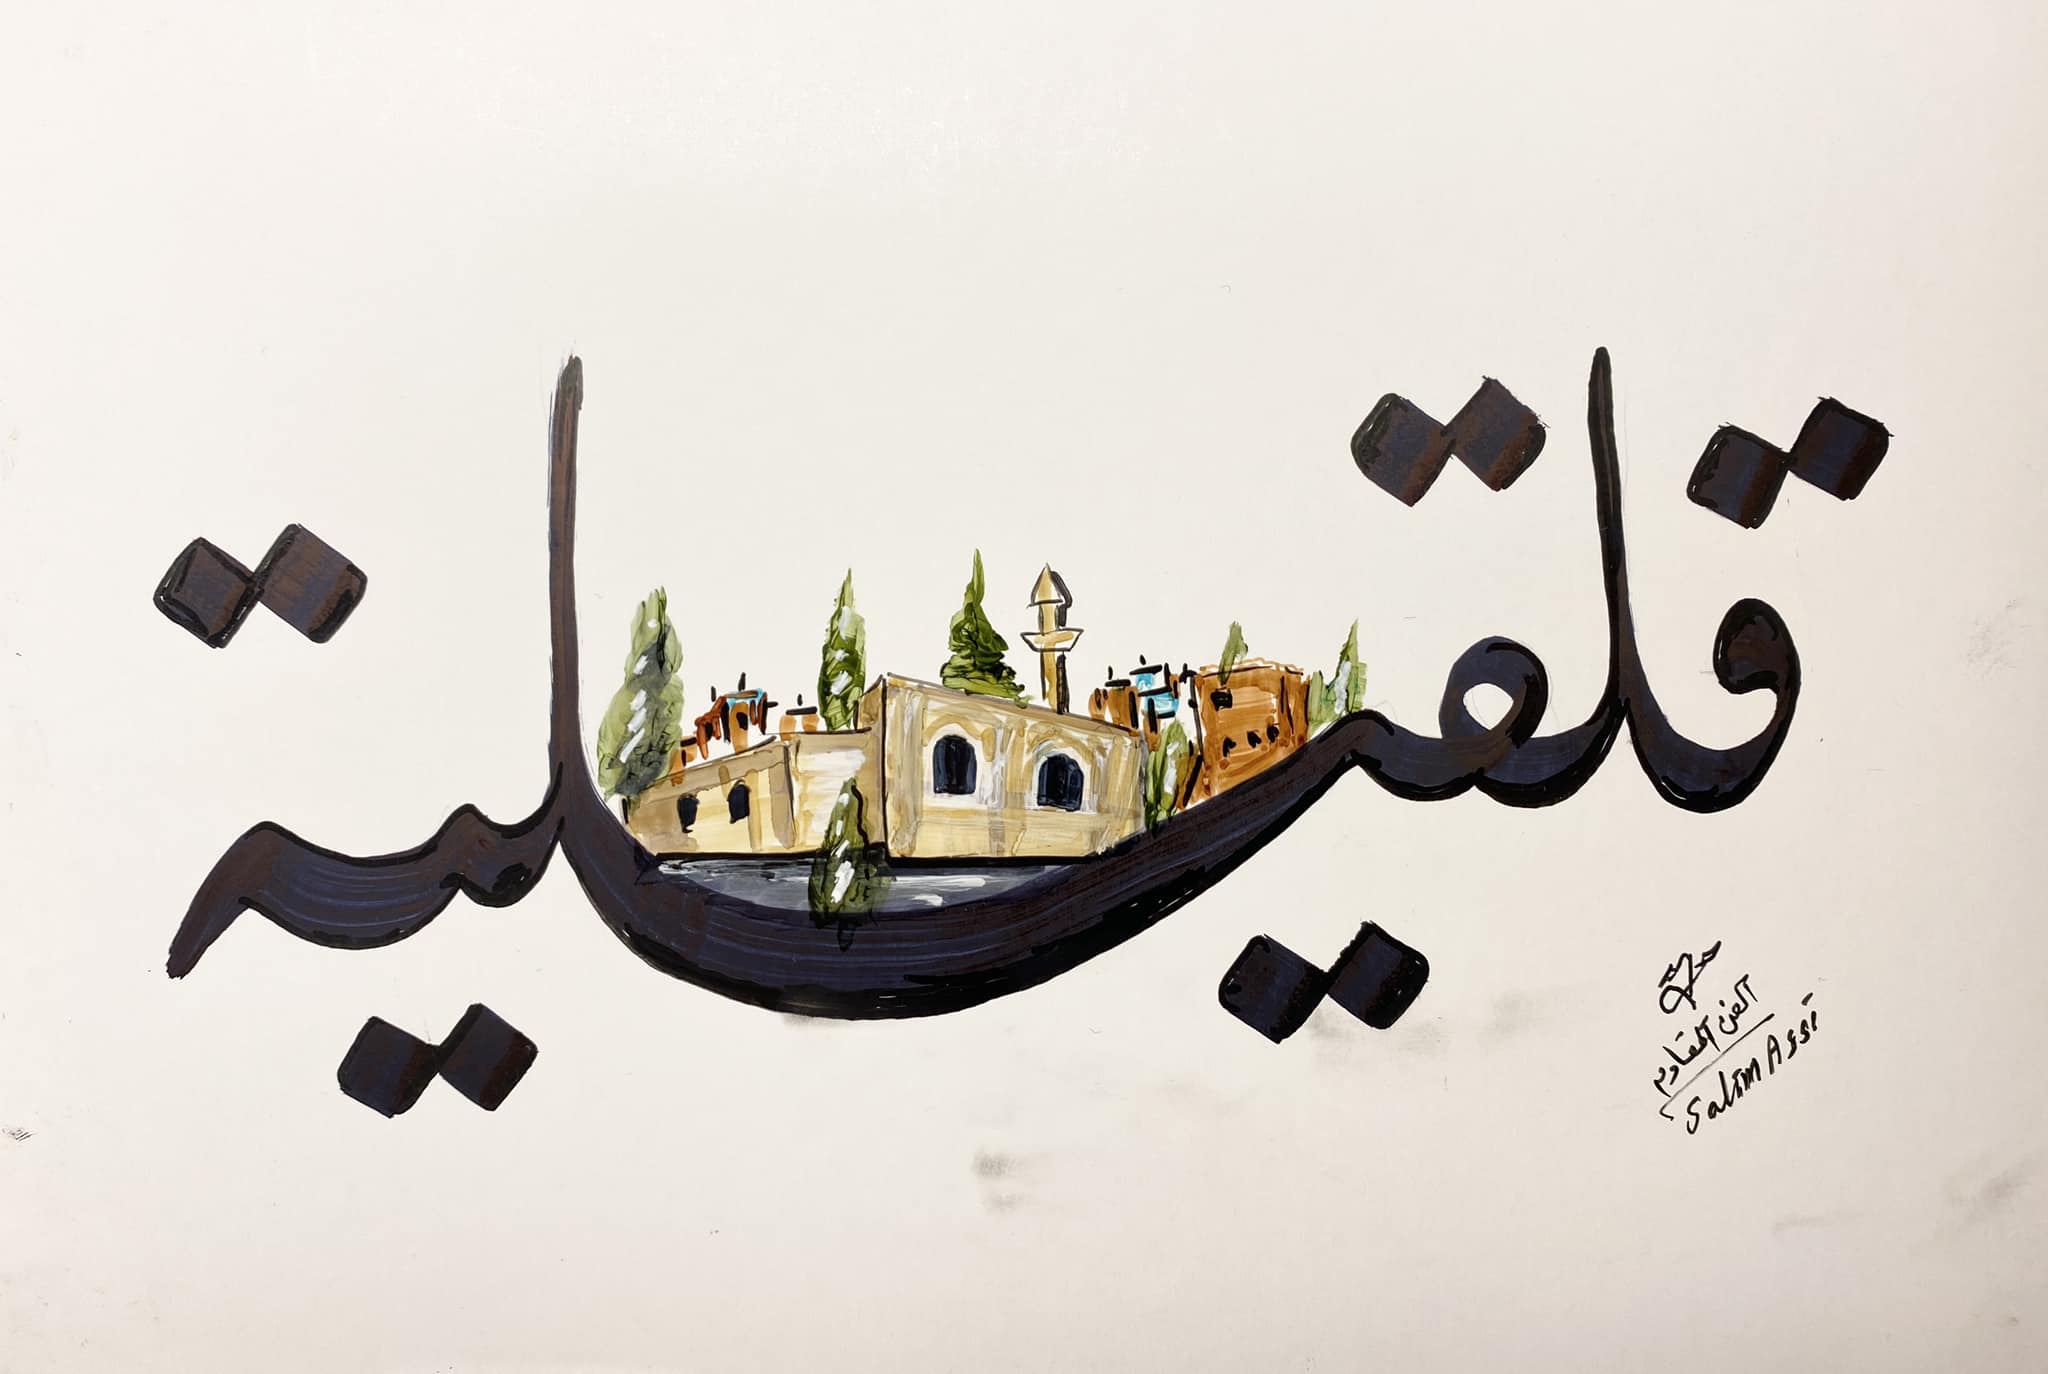 قلقيلية
الفن المقاوم
Salim Assi